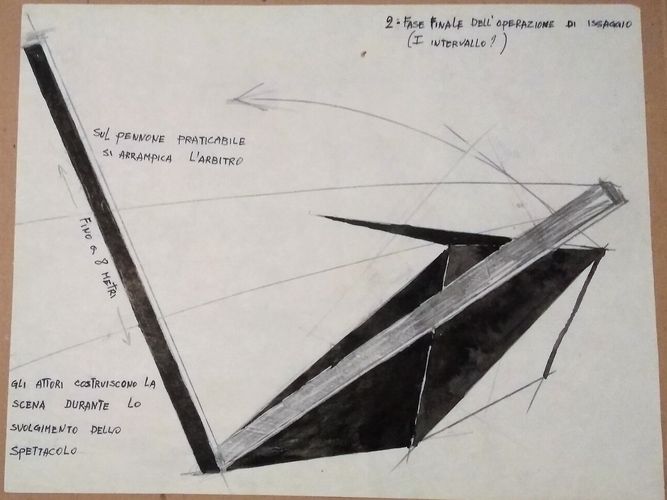 2 - FASE FINALE DELL'OPERAZIONE DI ISSAGGIO
(I INTERVALLO?)
SUL PENNONE PRATICABILE
SI ARRAMPICA L'ARBITRO
FINO a 8 METRI
GLI ATTORI COSTRUISCONO LA
SCENA DURANTE LO
SVOLGIMENTO DELLO
SPETTACOLO